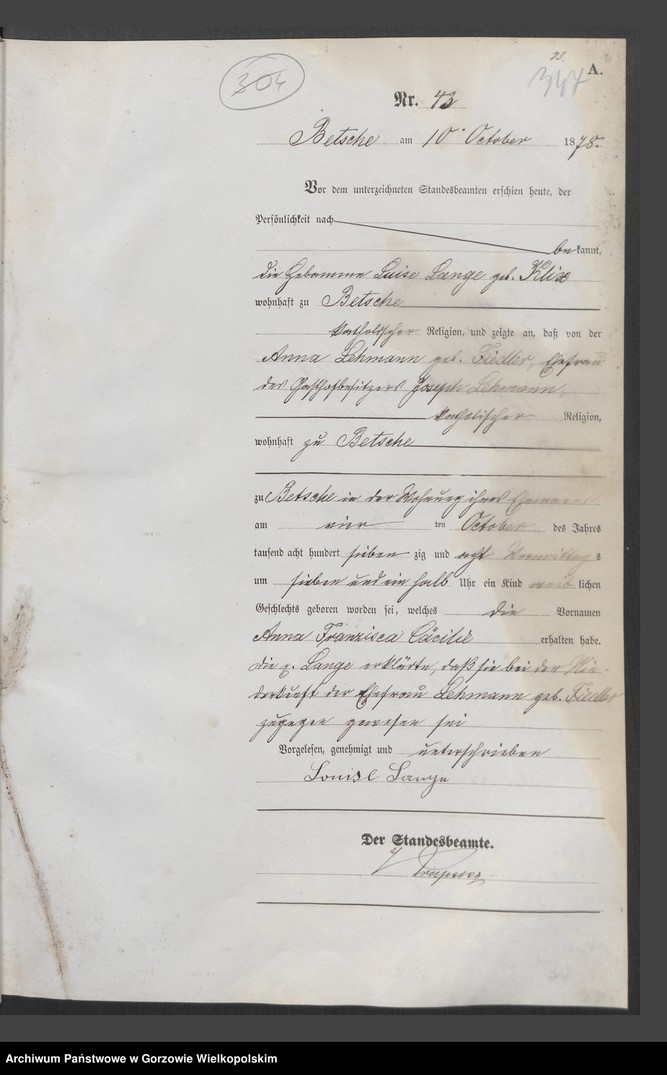 304
347
A.
Nr. 43
Betsche am 10. October 1878.
Vor dem unterzeichneten Standesbeamten erschien heute, der
Persönlichkeit nach
be kannt,
die Hebamme Luise Lange geb. Klix
wohnhaft zu Betsche
katholischer Religion, und zeigte an, daß von der
Anna Lehmann geb. Fiedler, Ehefrau
des Gasthofbesitzers Joseph Lehmann,
katholischer Religion,
wohnhaft zu Betsche
zu Betsche in der Wohnung ihres Ehemannes
am vier ten October des Jahres
tausend acht hundert sieben zig und acht Vormittag s
um sieben und ein halb Uhr ein Kind weib lichen
Geschlechts geboren worden sei, welches die Vornamen
Anna Franzisca Cäcilie erhalten habe.
die p. Lange erklärte, daß sie bei der Nie-
derkunft der Ehefrau Lehmann geb. Fiedler
zugegen gewesen sei
Vorgelesen, genehmigt und unterschrieben
Louise Lange
Der Standesbeamte.
Archiwum Państwowe w Gorzowie Wielkopolskim